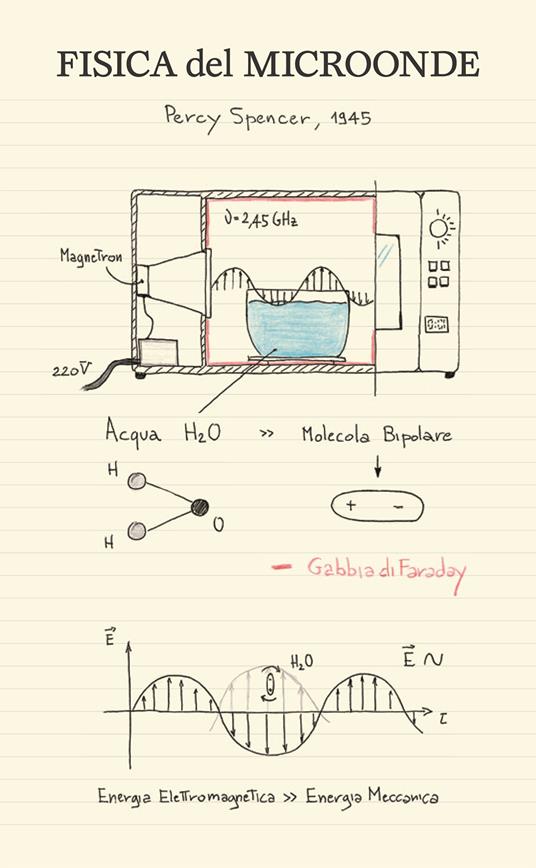 FISICA del MICROONDE
Percy Spencer, 1945
ν=2,45 GHz
Magnetron
220V
Acqua H₂O >> Molecola Bipolare
H
O
H
+ -
- Gabbia di Faraday
E⃗
H₂O
E⃗ ~
τ
Energia Elettromagnetica >> Energia Meccanica